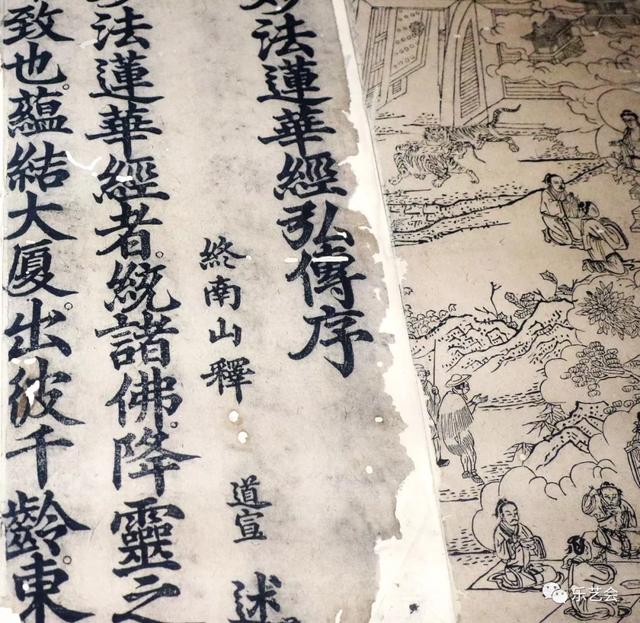 妙法蓮華經弘傳序
終南山釋 道宣 述
妙法蓮華經者統諸佛降靈之
致也蘊結大厦出彼千齡東
东艺会